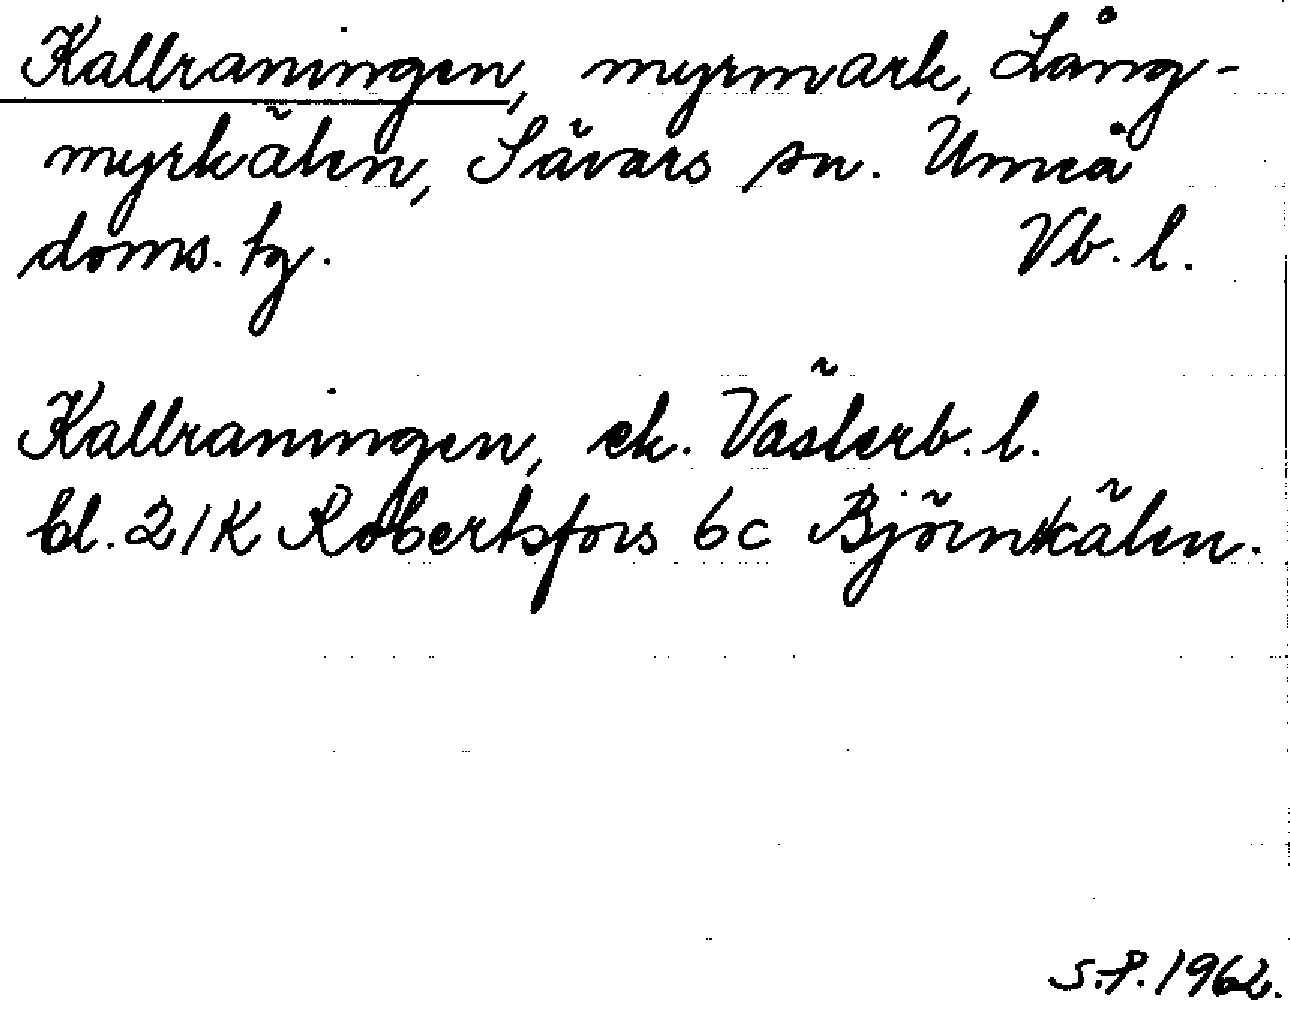 Kallraningen, myrmark, Lång-
myrkälen, Sävars sn. Umeå
doms. tg. Vb. l.
Kallraningen, ek. Västerb. l.
bl. 21K Robertsfors 6c Björnkälen.
S.P. 1962.